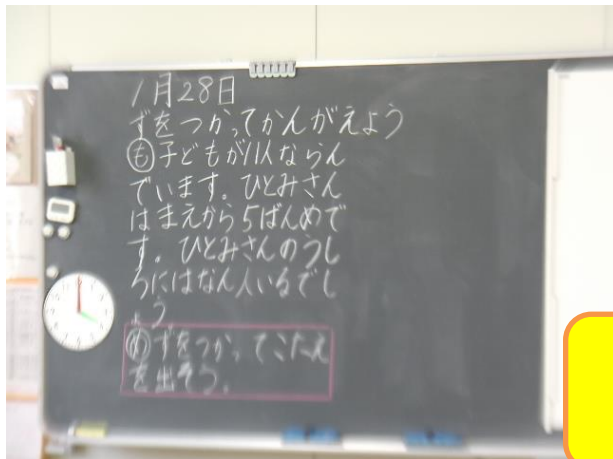 1月28日
ずをつかってかんがえよう
も子どもが11人ならん
でいます。ひとみさん
はまえから5ばんめで
す。ひとみさんのうし
ろにはなん人いるでし
ょう。
めずをつかってこたえ
を出そう。